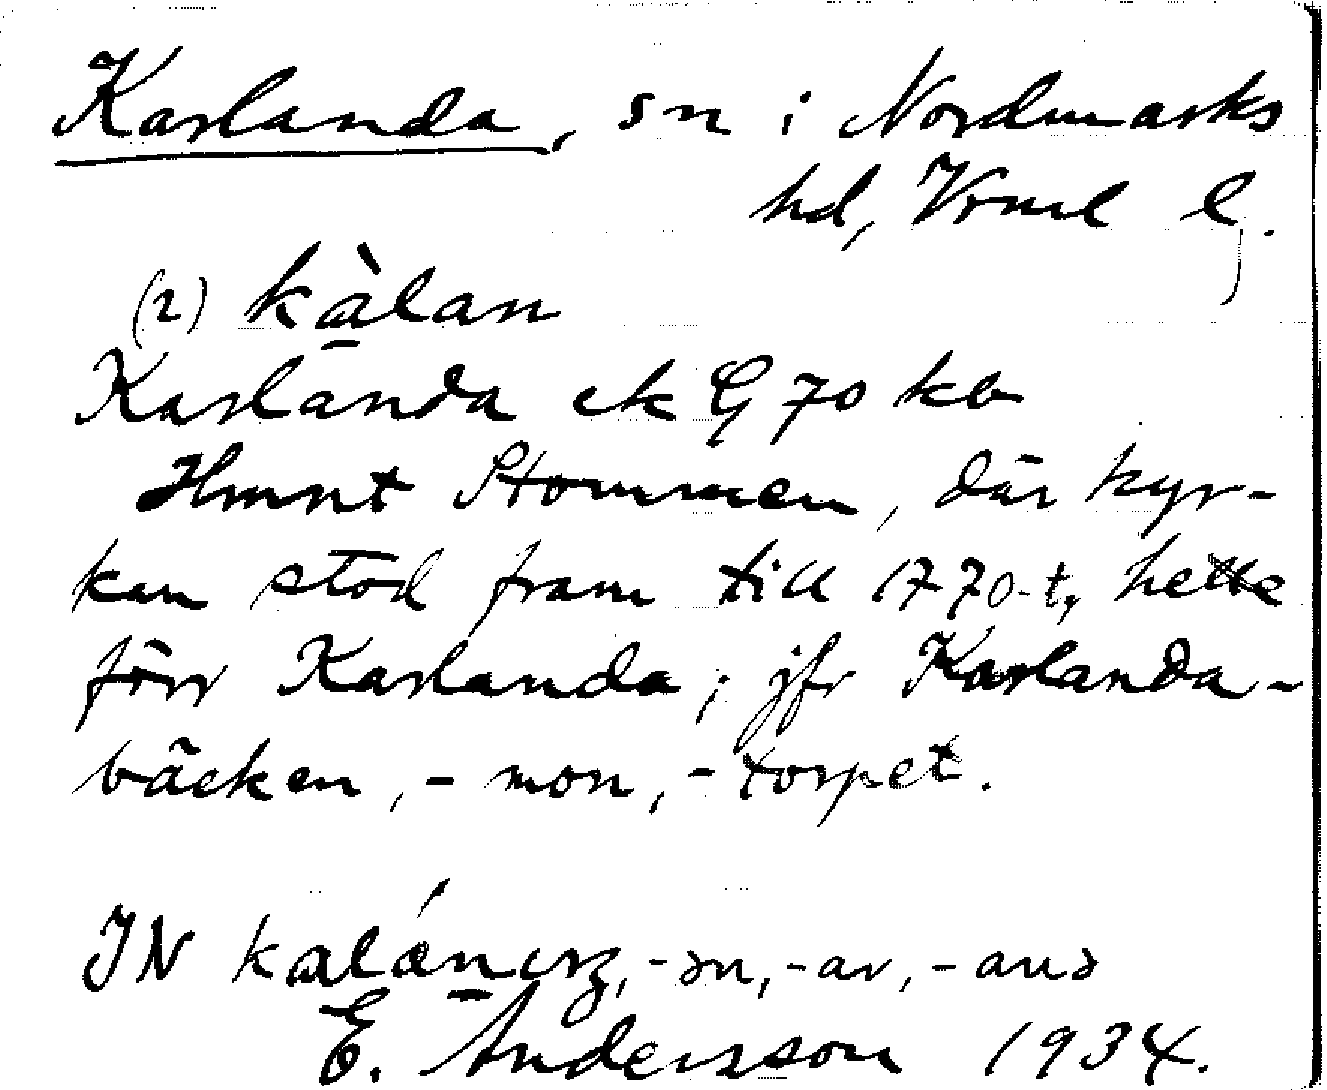 Karlanda, sn i Nordmarks
hd, Vrml l.
(2) kàlan
Karlanda ek G 70 kb
Hmnt Stommen, där kyr-
kan stod fram till 1770-t, hette
förr Karlanda; jfr Karlanda-
bäcken, -mon, -torpet.
IN
E. Andersson 1934.